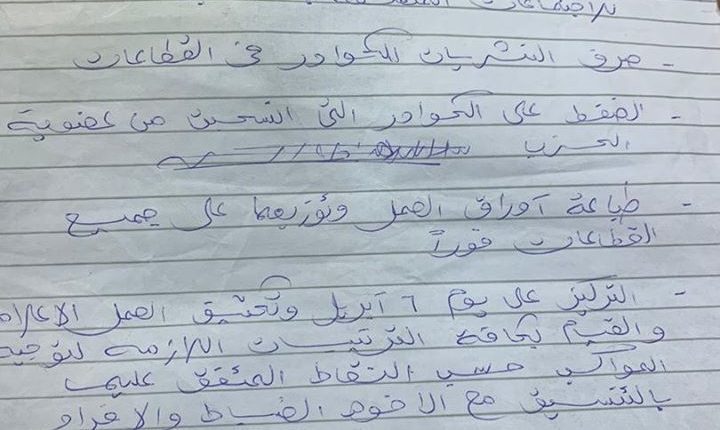 - صرف النثريات للكوادر في القطاعات
- الضغط على الكوادر التي انسحبت من عضوية
الحزب
- طباعة أوراق العمل وتوزيعها على جميع
القطاعات فوراً
- التركيز على يوم ٦ أبريل وتحقيق العمل
والقيام بكافة الترتيبات اللازمة لتوجيه
المواكب حسب النقاط المتفق عليها
بالتنسيق مع الاخوة الضباط والافراد